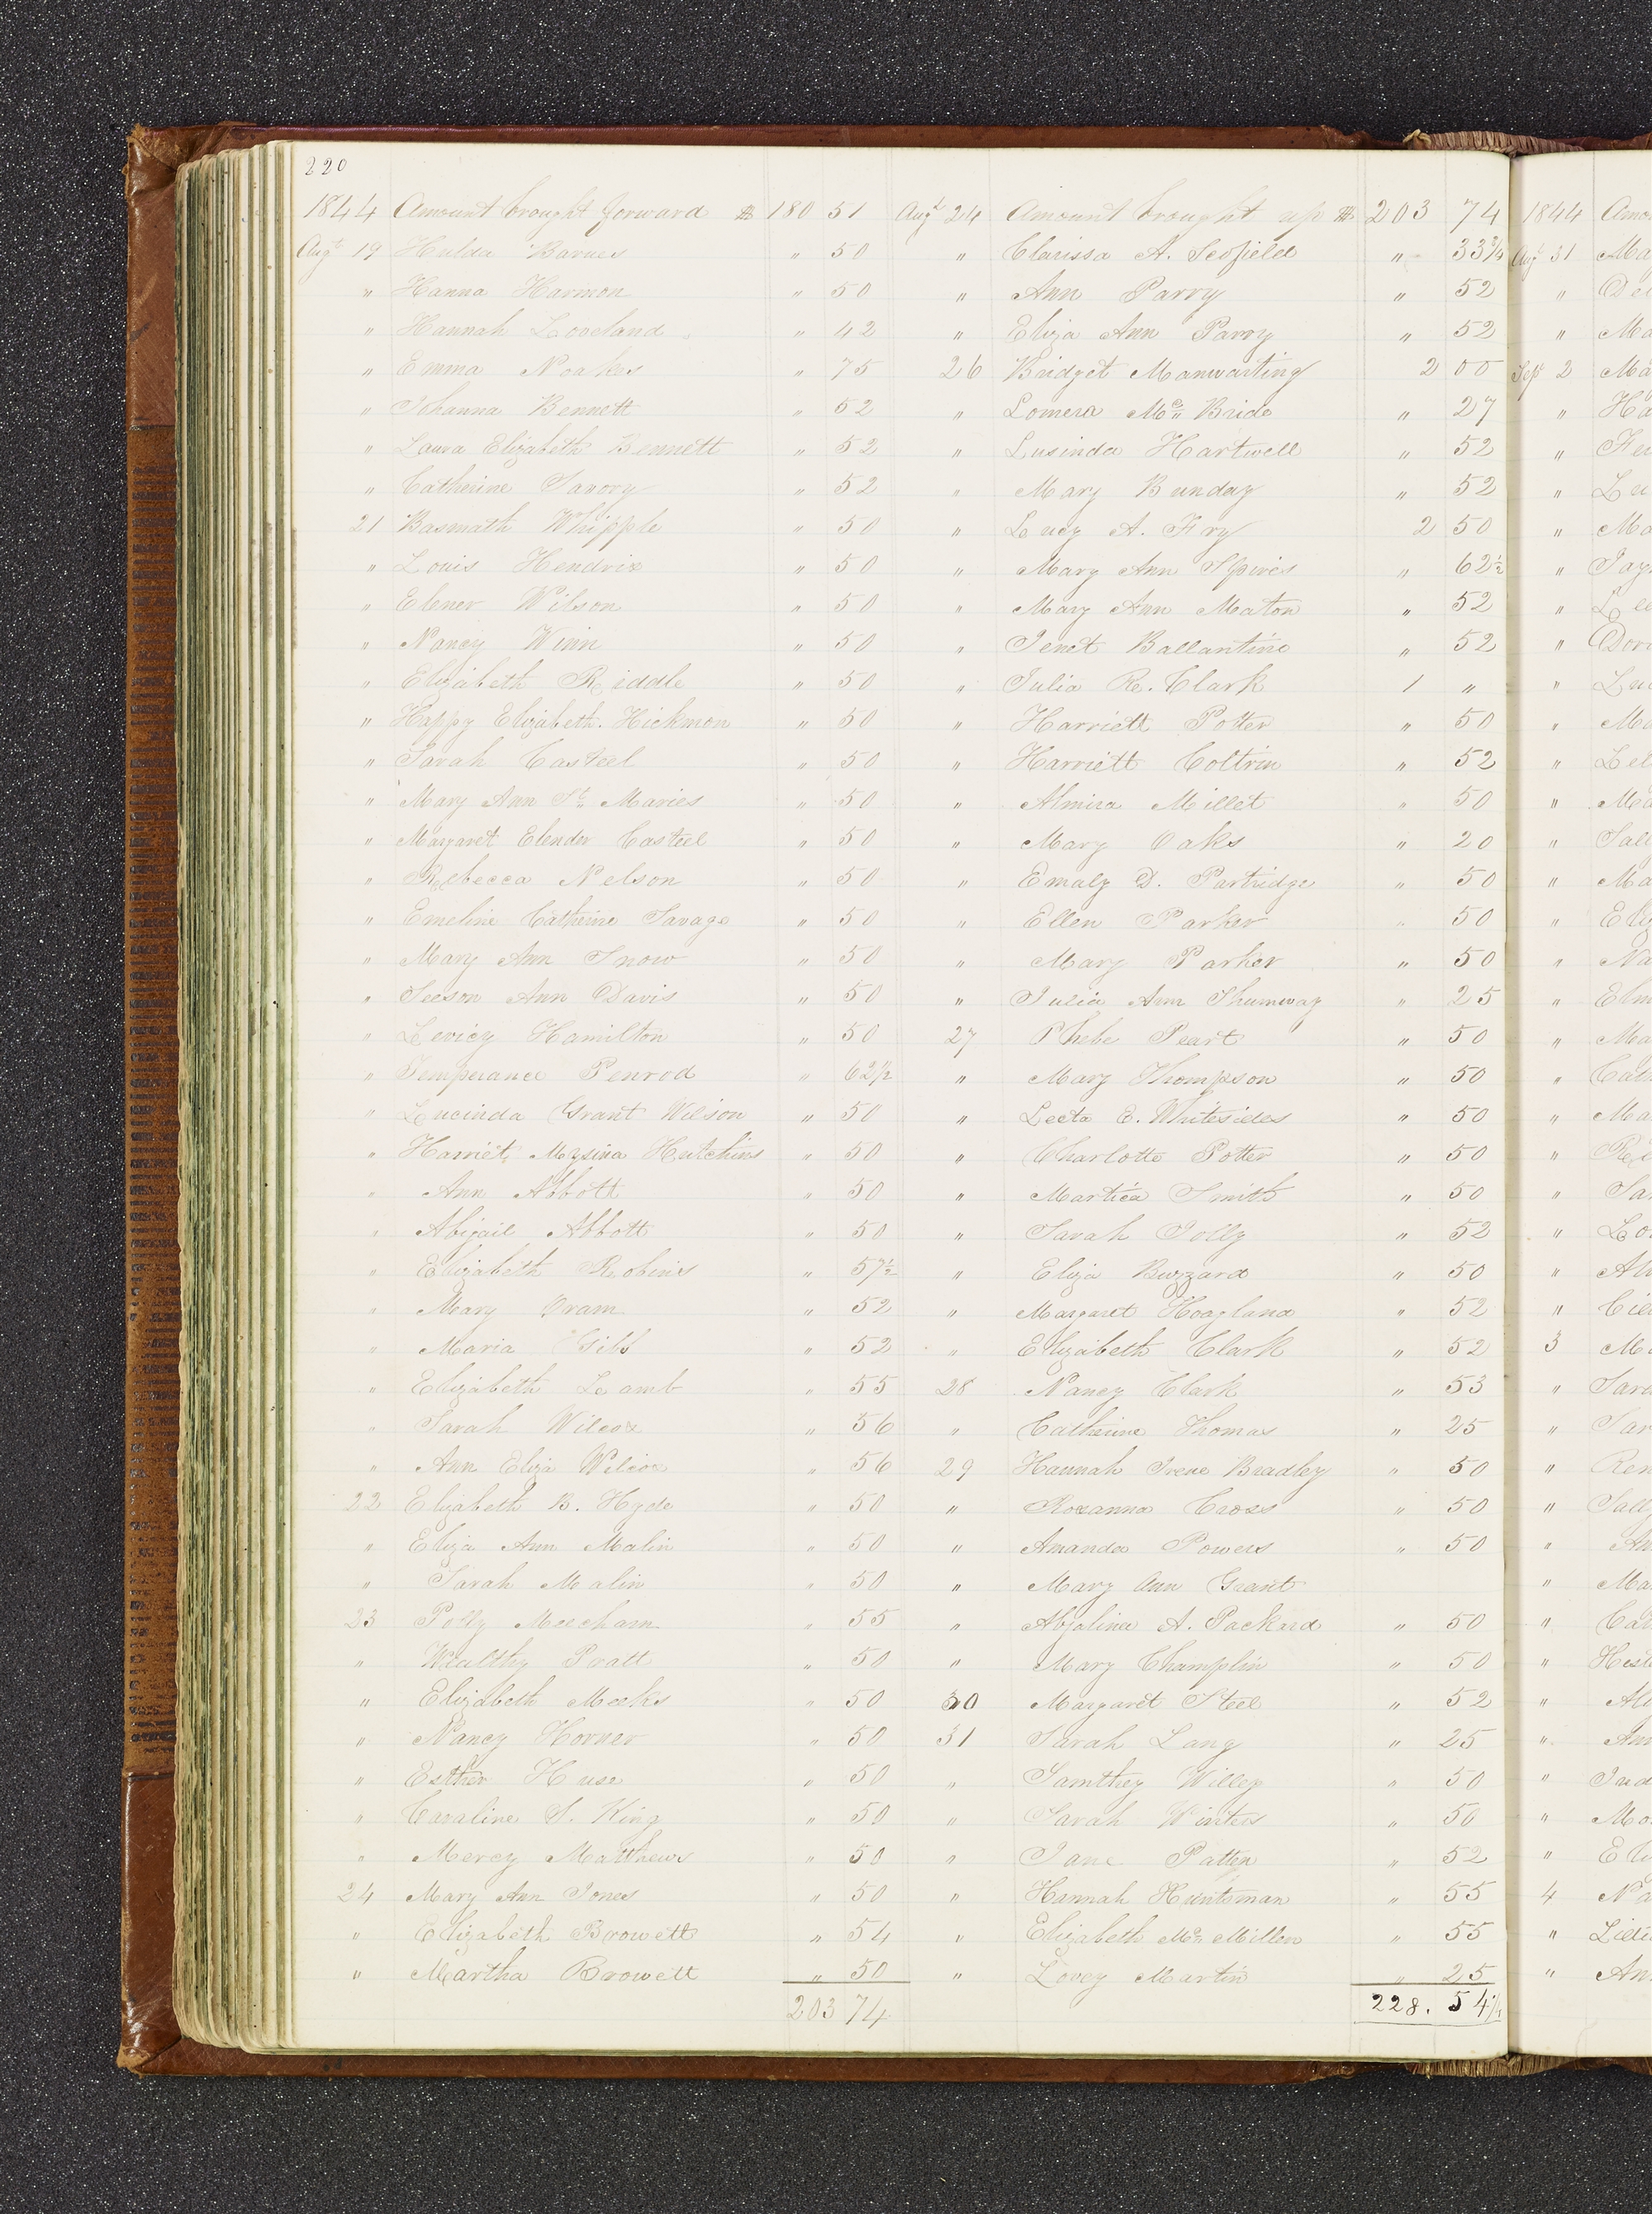 220
1844 Amount brought forward $ 180 51
Augt 19 Hulda Barnes " 50
" Hanna Harmon " 50
" Hannah Loveland " 42
" Emma Noakes " 75
" Johanna Bennett " 52
" Laura Elizabeth Bennett " 52
" Catherine Savory " 52
21 Basmath Whipple " 50
" Louis Hendrix " 50
" Elener Wilson " 50
" Nancy Winn " 50
" Elizabeth Riddle " 50
" Happy Elizabeth Hickmon " 50
" Sarah Casteel " 50
" Mary Ann St Maries " 50
" Margaret Elender Casteel " 50
" Rebecca Nelson " 50
" Emeline Catherine Savage " 50
" Mary Ann Snow " 50
" Seeson Ann Davis " 50
" Levicy Hamilton " 50
" Temperance Penrod " 62 1/2
" Lucinda Grant Wilson " 50
" Harriet Mysina Hutchins " 50
" Ann Abbott " 50
" Abigail Abbott " 50
" Elizabeth Robins " 57 1/2
" Mary Oram " 52
" Maria Gibb " 52
" Elizabeth Lamb " 55
" Sarah Wilcox " 56
" Ann Eliza Wilcox " 56
22 Elizabeth B. Hyde " 50
" Eliza Ann Malin " 50
" Sarah Malin " 50
23 Polly Meecham " 55
" Wealthy Pratt " 50
" Elizabeth Meeks " 50
" Nancy Horner " 50
" Esther Huse " 50
" Caraline S. King " 50
" Mercy Matthews " 50
24 Mary Ann Jones " 50
" Elizabeth Browett " 54
" Martha Browett " 50
203 74
Augt 24 Amount brought up $ 203 74
" Clarissa A. Scofield " 33 3/4
" Ann Parry " 52
" Eliza Ann Parry " 52
26 Bridget Manwarting 2 00
" Lomera Mc Bride " 27
" Lusinda Hartwell " 52
" Mary Bunday " 52
" Lucy A. Fry 2 50
" Mary Ann Spires " 62 1/2
" Mary Ann Maton " 52
" Jenet Ballantine " 52
" Julia Re. Clark 1 "
" Harriett Potter " 50
" Harriett Coltrin " 52
" Almira Millet " 50
" Mary Oaks " 20
" Emaly D. Partridge " 50
" Ellen Parker " 50
" Mary Parker " 50
" Julia Ann Shumway " 25
27 Phebe Peart " 50
" Mary Thompson " 50
" Leeta E. Whitesides " 50
" Charlotte Potter " 50
" Martica Smith " 50
" Sarah Jolly " 52
" Eliza Buzzard " 50
" Margaret Hoagland " 52
" Elizabeth Clark " 52
28 Nancy Clark " 53
" Catherine Thomas " 25
29 Hannah Irene Bradley " 50
" Roxanna Cross " 50
" Amanda Powers " 50
" Mary Ann Grant
" Abjalina A. Packard " 50
" Mary Champlin " 50
30 Margaret Steel " 52
31 Sarah Lang " 25
" Samthey Willey " 50
" Sarah Winters " 50
" Jane Patten " 52
" Hannah Huntsman " 55
" Elizabeth Mc Millen " 55
" Lovey Martin " 25
228. 54 1/4
1844 Amo
Augt 31 Ma
" De
" Ma
Sept 2 Ma
" Ha
" Lu
" Ma
" Dor
" Ma
" Sall
" Ma
" Na
" Elm
" Ma
" Cat
3 Ma
" Sar
" Sar
" Sally
" Ma
" Hest
" Mo
4 Na
" An